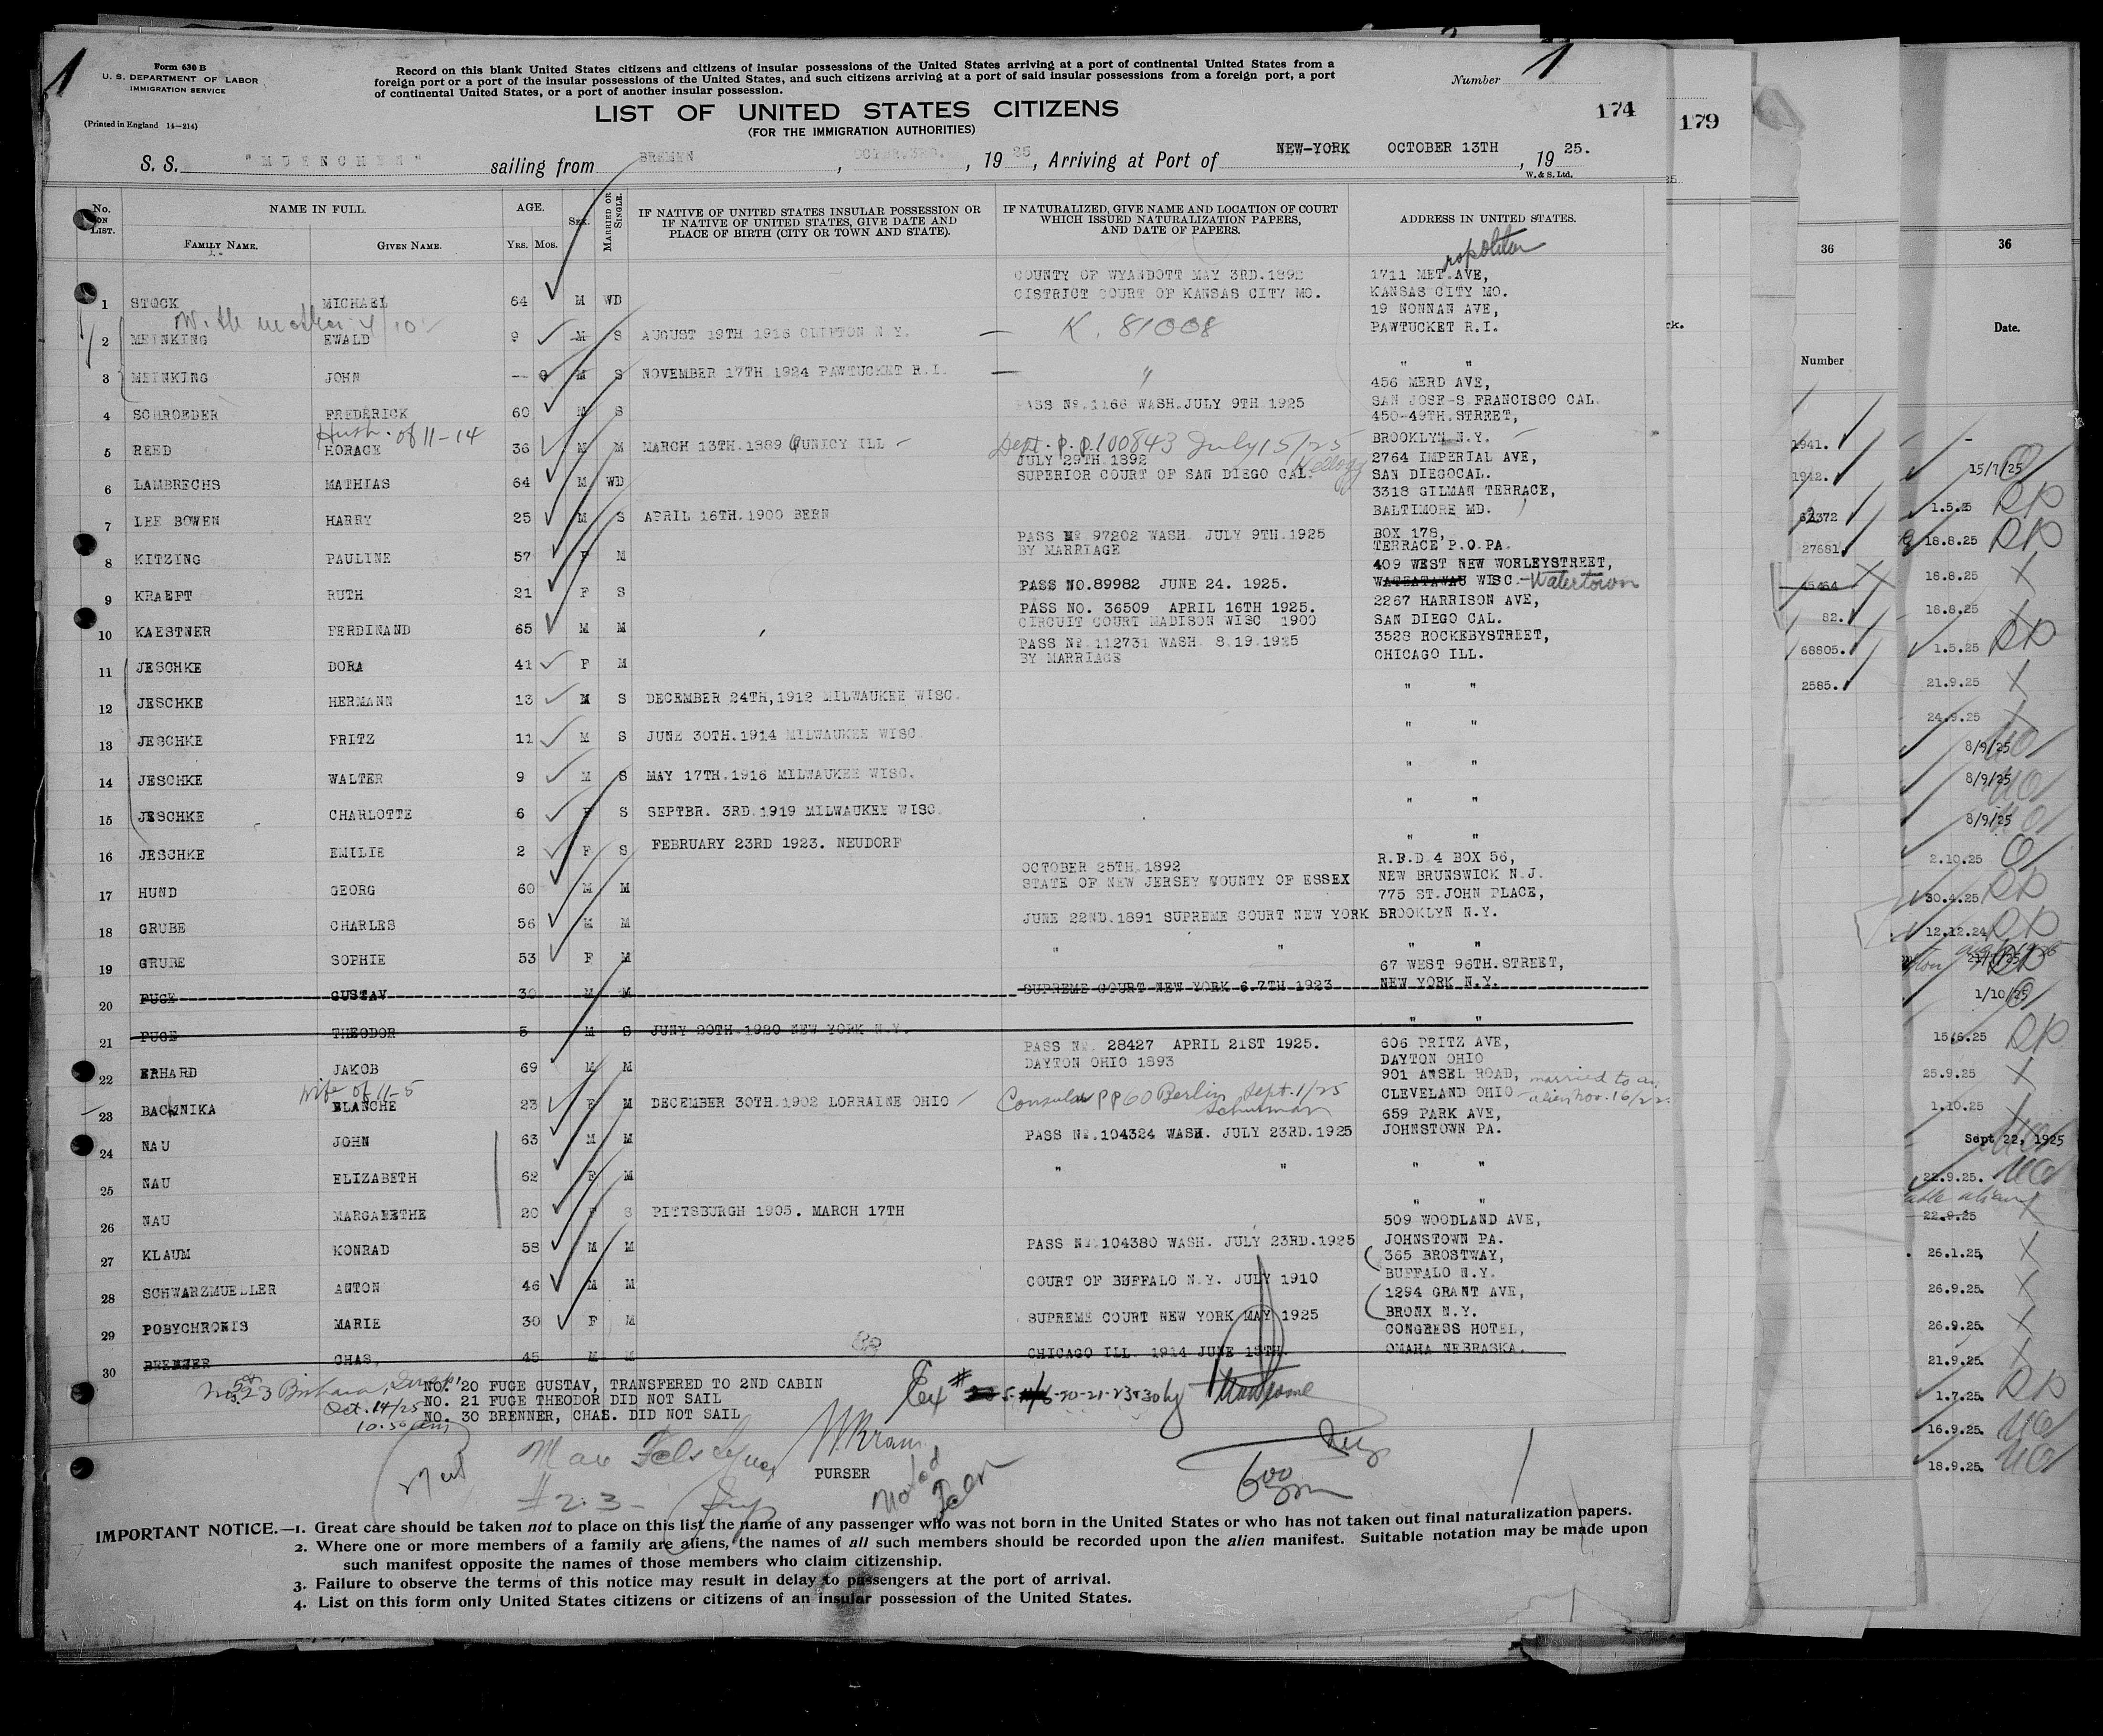 1
Form 630 B
U. S. DEPARTMENT OF LABOR
IMMIGRATION SERVICE
(Printed in England 14—214)
Record on this blank United States citizens and citizens of insular possessions of the United States arriving at a port of continental United States from a
foreign port or a port of the insular possessions of the United States, and such citizens arriving at a port of said insular possessions from a foreign port, a port
of continental United States, or a port of another insular possession.
Number 1
LIST OF UNITED STATES CITIZENS
(FOR THE IMMIGRATION AUTHORITIES)
174
179
S. S. "MUENCHEN" sailing from BREMEN, OCTBR.3RD., 1925, Arriving at Port of NEW-YORK OCTOBER 13TH, 1925.
W. & S. Ltd.
No. ON LIST.
NAME IN FULL.
FAMILY NAME.
GIVEN NAME.
AGE.
YRS. MOS.
SEX.
MARRIED OR SINGLE.
IF NATIVE OF UNITED STATES INSULAR POSSESSION OR
IF NATIVE OF UNITED STATES, GIVE DATE AND
PLACE OF BIRTH (CITY OR TOWN AND STATE).
IF NATURALIZED, GIVE NAME AND LOCATION OF COURT
WHICH ISSUED NATURALIZATION PAPERS,
AND DATE OF PAPERS.
ADDRESS IN UNITED STATES.
ropolitan
COUNTY OF WYANDOTT MAY 3RD.1892 1711 MET.AVE,
1 STOCK MICHAEL 64 M WD DISTRICT COURT OF KANSAS CITY MO. KANSAS CITY MO.
With mother 4/10
19 NONNAN AVE,
2 MEINKING EWALD 9 M S AUGUST 19TH 1916 CLIFTON N.Y. — K. 81008 PAWTUCKET R.I.
3 MEINKING JOHN — M S NOVEMBER 17TH 1924 PAWTUCKET R.I. — " " "
456 MERD AVE,
4 SCHROEDER FREDERICK 60 M S PASS No.1166 WASH.JULY 9TH 1925 SAN JOSE-S.FRANCISCO CAL.
Husb. of 11-14
450-49TH.STREET,
5 REED HORACE 36 M M MARCH 13TH.1889 QUNICY ILL Dept. p.p.100843 July 15/25 BROOKLYN N.Y.
Kellogg
JULY 29TH.1892 2764 IMPERIAL AVE,
6 LAMBRECHS MATHIAS 64 M WD SUPERIOR COURT OF SAN DIEGO CAL. SAN DIEGOCAL.
3318 GILMAN TERRACE,
7 LEE BOWEN HARRY 25 M S APRIL 16TH.1900 BERN BALTIMORE MD.
PASS No 97202 WASH. JULY 9TH.1925 BOX 178,
8 KITZING PAULINE 57 F M BY MARRIAGE TERRACE P.O.PA.
409 WEST NEW WORLEYSTREET,
9 KRAEFT RUTH 21 F S PASS NO.89982 JUNE 24. 1925. WISC.-Watertown
PASS NO. 36509 APRIL 16TH 1925. 2267 HARRISON AVE,
10 KAESTNER FERDINAND 65 M M CIRCUIT COURT MADISON WISC 1900 SAN DIEGO CAL.
PASS No.112731 WASH. 8.19.1925 3528 ROCKEBYSTREET,
11 JESCHKE DORA 41 F M BY MARRIAGE CHICAGO ILL.
12 JESCHKE HERMANN 13 M S DECEMBER 24TH,1912 MILWAUKEE WISC. " "
13 JESCHKE FRITZ 11 M S JUNE 30TH.1914 MILWAUKEE WISC. " "
14 JESCHKE WALTER 9 M S MAY 17TH.1916 MILWAUKEE WISC. " "
15 JESCHKE CHARLOTTE 6 F S SEPTBR. 3RD.1919 MILWAUKEE WISC. " "
16 JESCHKE EMILIE 2 F S FEBRUARY 23RD 1923. NEUDORF " "
OCTOBER 25TH.1892 R.F.D.4 BOX 56,
17 HUND GEORG 60 M M STATE OF NEW JERSEY WOUNTY OF ESSEX NEW BRUNSWICK N.J.
775 ST.JOHN PLACE,
18 GRUBE CHARLES 56 M M JUNE 22ND.1891 SUPREME COURT NEW YORK BROOKLYN N.Y.
19 GRUBE SOPHIE 53 F M " " " "
67 WEST 96TH.STREET,
20 FUGE GUSTAV 30 M M SUPREME COURT NEW YORK 6.7TH 1923 NEW YORK N.Y.
21 FUGE THEODOR 5 M S JUNY 20TH.1920 NEW YORK N.Y. " "
PASS No. 28427 APRIL 21ST 1925. 606 PRITZ AVE,
22 ERHARD JAKOB 69 M M DAYTON OHIO 1893 DAYTON OHIO
Wife of 11-5
901 ANSEL ROAD, married to an
23 BACHNIKA BLANCHE 23 F M DECEMBER 30TH.1902 LORRAINE OHIO Consular PP60 Berlin Sept.1/25 CLEVELAND OHIO alien Nov. 16/22
Schurman
659 PARK AVE,
24 NAU JOHN 63 M M PASS No.104324 WASH. JULY 23RD.1925 JOHNSTOWN PA.
25 NAU ELIZABETH 62 F M " " " "
26 NAU MARGARETHE 20 F S PITTSBURGH 1905. MARCH 17TH " "
509 WOODLAND AVE,
27 KLAUM KONRAD 58 M M PASS No.104380 WASH. JULY 23RD.1925 JOHNSTOWN PA.
365 BROSTWAY,
28 SCHWARZMUELLER ANTON 46 M M COURT OF BUFFALO N.Y. JULY 1910 BUFFALO N.Y.
1294 GRANT AVE,
29 POBYCHRONIS MARIE 30 F M SUPREME COURT NEW YORK MAY 1925 BRONX N.Y.
CONGRESS HOTEL,
30 BRENNER CHAS, 45 M M CHICAGO ILL. 1914 JUNE 15TH. OMAHA NEBRASKA.
NO. 20 FUGE GUSTAV, TRANSFERED TO 2ND CABIN
Oct. 14/25 NO. 21 FUGE THEODOR DID NOT SAIL
10.30 am NO. 30 BRENNER, CHAS. DID NOT SAIL
PURSER
Noted
#23-
IMPORTANT NOTICE.—1. Great care should be taken not to place on this list the name of any passenger who was not born in the United States or who has not taken out final naturalization papers.
2. Where one or more members of a family are aliens, the names of all such members should be recorded upon the alien manifest. Suitable notation may be made upon
such manifest opposite the names of those members who claim citizenship.
3. Failure to observe the terms of this notice may result in delay to passengers at the port of arrival.
4. List on this form only United States citizens or citizens of an insular possession of the United States.
36
Number
1941.
1942.
27681
45464
82.
68805.
2585.
36
Date.
15/7/25
1.5.25
18.8.25
18.8.25
18.8.25
1.5.25
21.9.25
24.9.25
8/9/25
8/9/25
8/9/25
2.10.25
30.4.25
12.12.24
1/10/25
15/6.25
25.9.25
1.10.25
Sept 22, 1925
22.9.25.
22.9.25
26.1.25
26.9.25.
26.9.25.
21.9.25.
1.7.25.
16.9.25.
18.9.25.